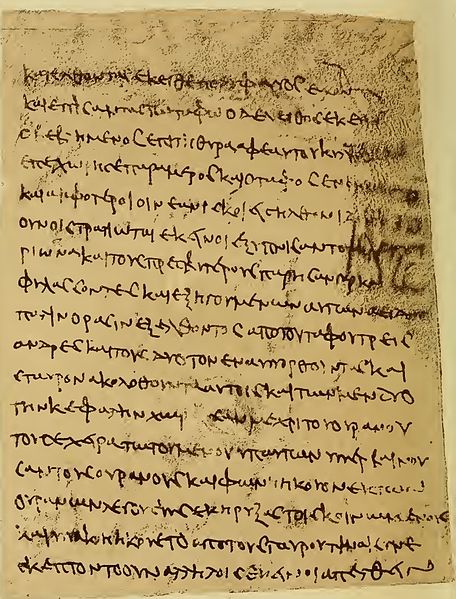 κατελθοντας εκειθε πολυ φεγγος εχον
και εγγισαντας τω ταφω ο δε λειθος εκει
βεβλημενος επι τη θυρα αφ εαυτου
επεχωρησε παρα μερος και ο ταφος
και αμφοτεροι οι νεανισκοι εισηλθον
ουν οι στρατιωται εκεινοι εξυπνισαν τον
ριωνα και τους πρεσβυτερους παρησαν γαρ
φυλασσοντες και εξηγουμενων αυτων α ειδον
παλιν ορασιν εξελθοντος απο του ταφου τρεις
ανδρες και τους δυο τον ενα υπορθουντας και
σταυρον ακολοθουντα αυτοις και των μεν δυο
την κεφαλην μεχρι του ουρανου
του δε χειρατωτουμενου υπ αυτων υπερβαινου
σαν τους ουρανους και φωνης ηκουον εκ των
ουρανων λεγουσης εκηρυξας τοις κοινωμενοις
ηκουετο απο του σταυρου
σκεπτοντο ουν αλληλοις εκεινοι απελθειν